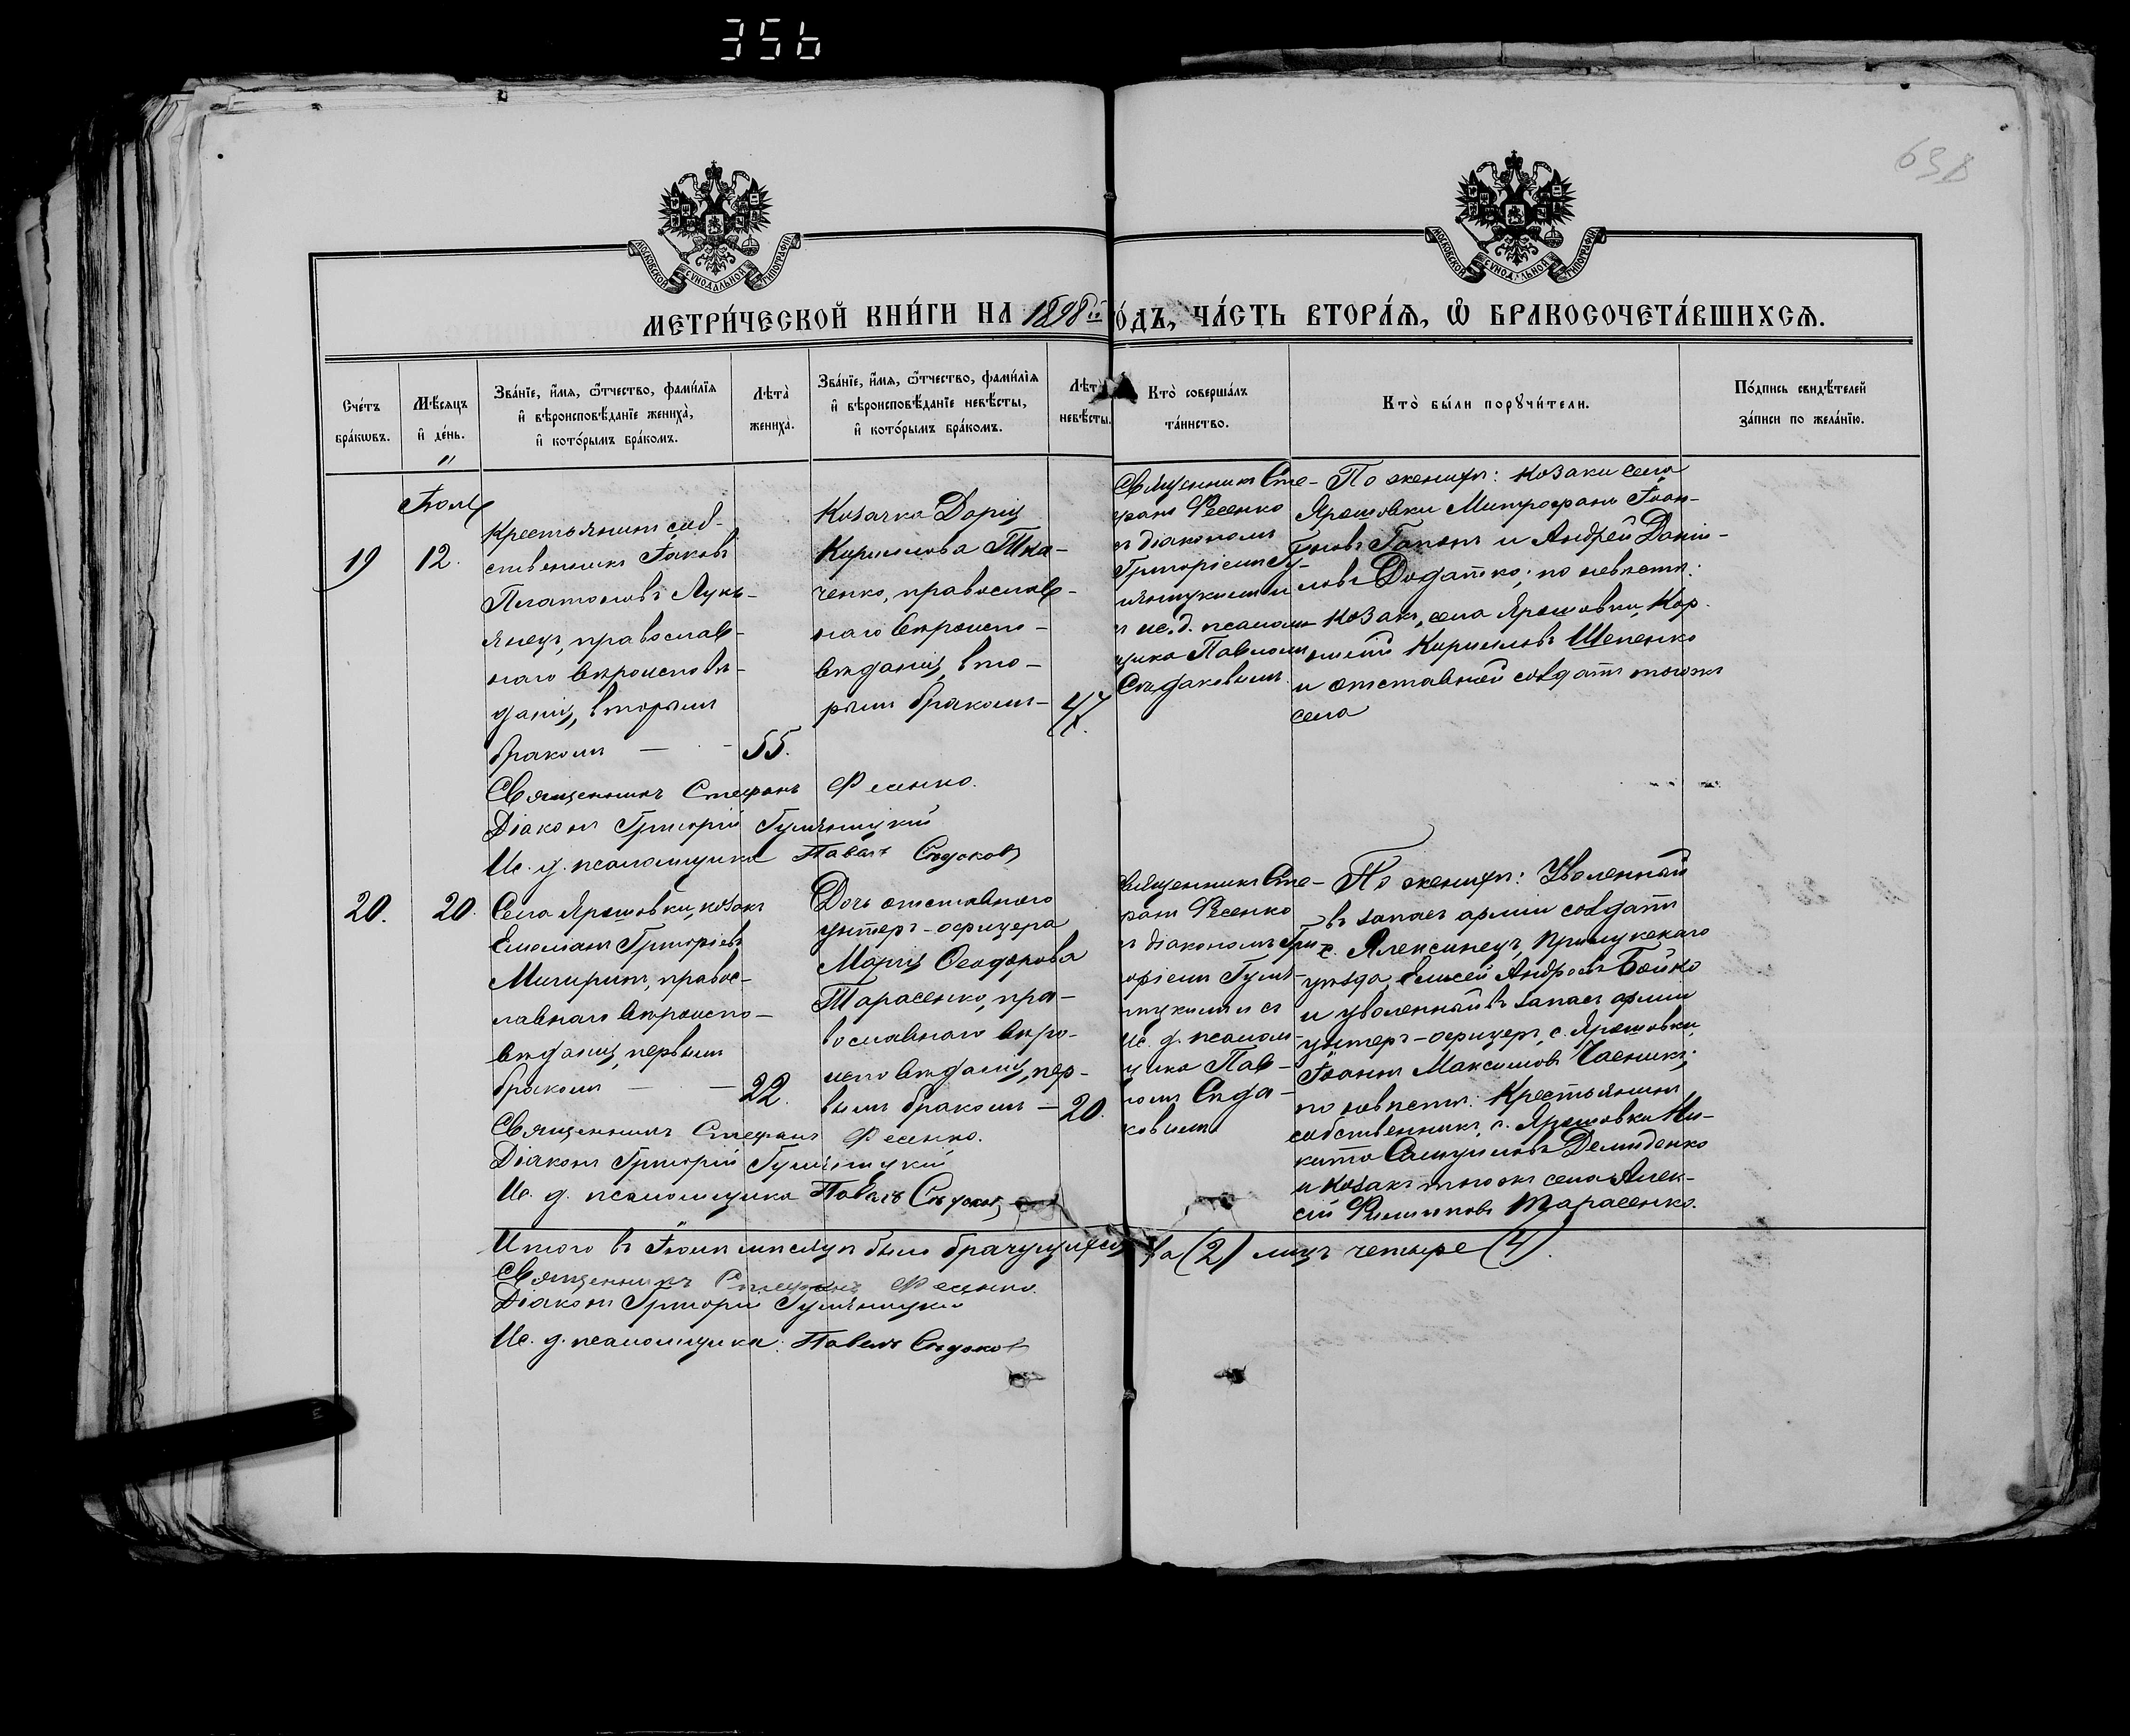 356
638
МОСКОВСКОЙ СѴНОДАЛЬНОЙ ТИПОГРАФІИ
МОСКОВСКОЙ СѴНОДАЛЬНОЙ ТИПОГРАФІИ
МЕТРИ́ЧЕСКОЙ КНИ́ГИ НА 1898й О́ДЪ, ЧА́СТЬ ВТОРА́Ѧ, Ѽ БРАКОСОЧЕТА́ВШИХСѦ.
Сче́тъ
бра́кѡвъ.
Мѣ́сѧцъ
и҆ де́нь.
Зва́нїе, и҆́мѧ, ѻ҆́тчество, фами́лїѧ
и҆ вѣроисповѣ́данїе жениха̀,
и҆ кото́рымъ бра́комъ.
Лѣта̀
жениха̀.
Зва́нїе, и҆́мѧ, ѻ҆́тчество, фами́лїѧ
и҆ вѣроисповѣ́данїе невѣ́сты,
и҆ кото́рымъ бра́комъ.
Лѣт
невѣ́сты.
Кто̀ соверша́лъ
та́инство.
Кто̀ бы́ли порꙋчи́тели.
По́дпись свидѣ́телей
за́писи по жела́нїю.
19
12.
Крестьянинъ соб-
ственникъ Іаковъ
Платоновъ Лукь-
янецъ, православ-
наго вѣроисповѣ-
данія, вторымъ
бракомъ — -
55.
Козачка Дарія
Кириллова Тка-
ченко, православ-
наго вѣроиспо-
вѣданія, вто-
рымъ бракомъ -
47.
Священникъ Сте-
фанъ Фесенко
съ діакономъ
Григоріемъ Гу-
и
с ис. д. псалом-
щика Павломъ
Сѣдаковымъ
По женихѣ: козаки села
Ярошовки Митрофанъ Іоан-
новъ Гапонъ и Андрей Дани-
ловъ Додатко; по невѣстѣ:
козакъ, села Ярошовки, Кор-
нилій Кирилловъ Шепенко
и отставной солдатъ тогожъ
села
Священникъ Стефанъ Фесенко.
Діаконъ Григорій
Ис. д. псаломщика Павелъ Сѣдаковъ
20.
20.
Села Ярошовки, козакъ
Емеліанъ Григоріевъ
правос-
лавнаго вѣроиспо-
вѣданія, первымъ
бракомъ — —
22.
Дочь отставного
унтеръ-офицера
Марія Ѳеодорова
Тарасенко, пра-
вославнаго вѣро-
исповѣданія, пер-
вымъ бракомъ —
20.
вященникъ Сте-
фанъ Фесенко
съ діакономъ Гри
горіемъ
съ
ис. д. псалом-
щика Пав-
ломъ Сѣда-
ковымъ
По женихѣ: Уволенный
въ запасъ арміи солдатъ
с. Алексинецъ, Прилукскаго
уѣзда, Елисей Андреевъ Бойко
и уволенный въ запасъ арміи
унтеръ-офицеръ, с. Ярошовки,
Іоаннъ Максимовъ Чаеникъ;
по невѣстѣ: Крестьянинъ
собственникъ, с. Ярошовки Ни-
кита Самуиловъ Демиденко
и козакъ тогожъ села Алек-
сій Филиповъ Тарасенко.
Священникъ Стефанъ Фесенко.
Діаконъ Григорій
Ис. д. псаломщика Павелъ Сѣдаковъ
Итого въ Іюлѣ мѣсяцѣ было брачущихся два (2) лицъ четыре (4).
Священникъ Стефанъ Фесенко.
Діаконъ Григорій
Ис. д. псаломщика: Павелъ Сѣдаковъ